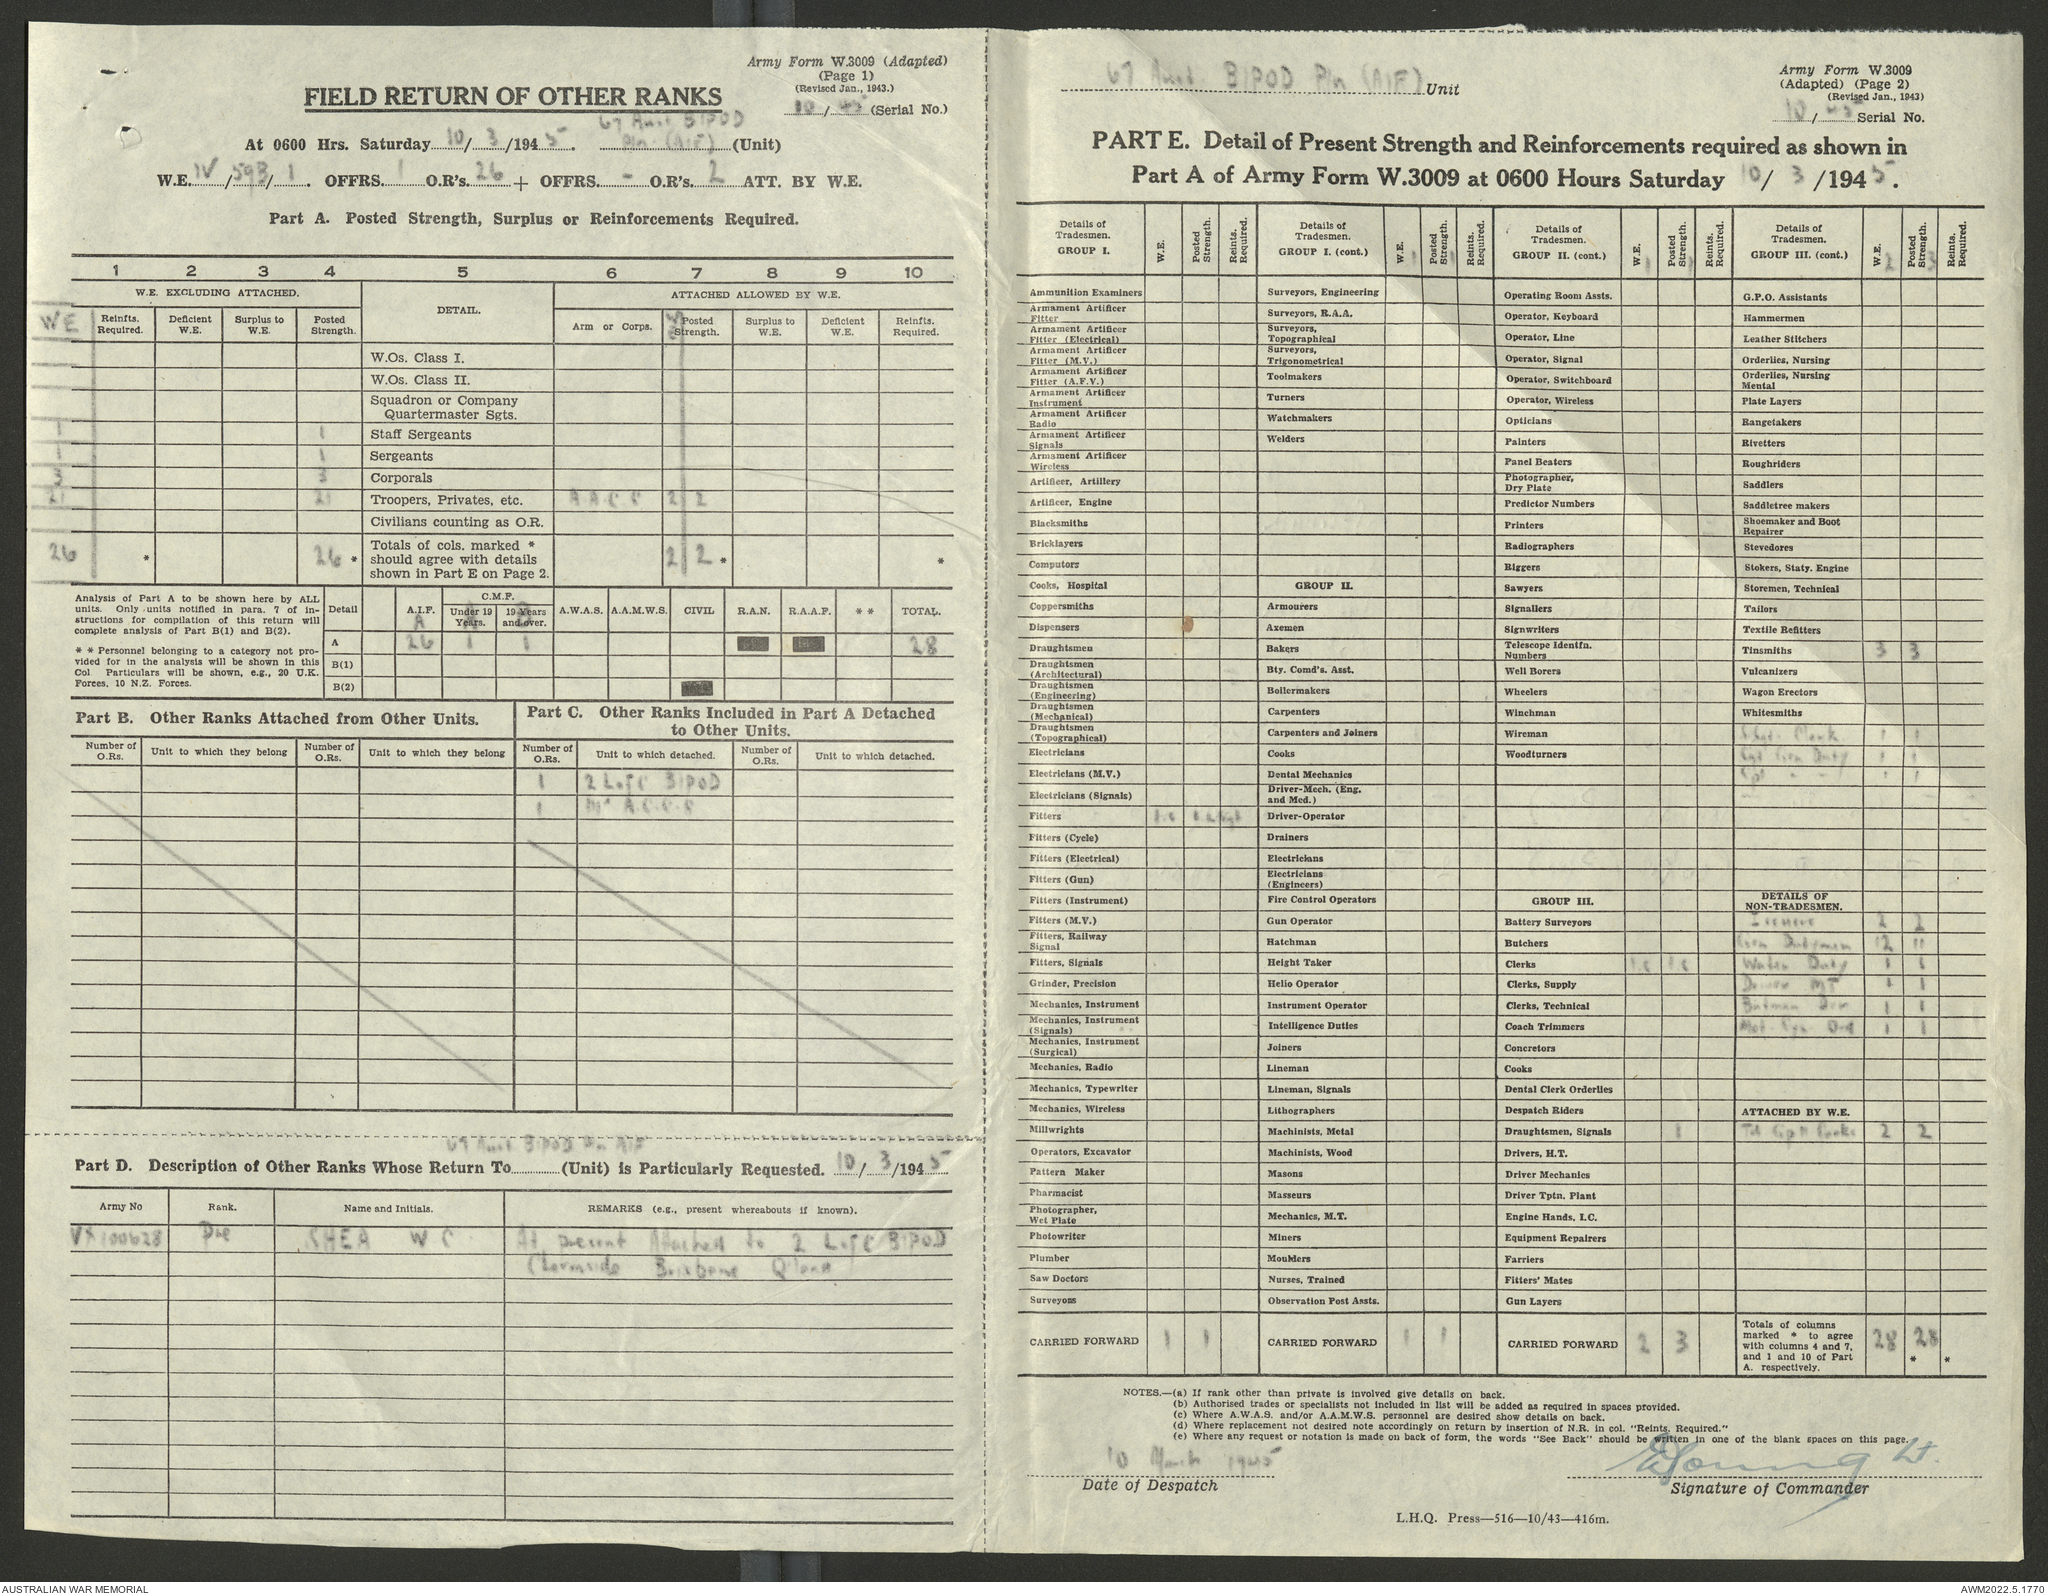 Army Form W.3009 (Adapted)
(Page 1)
(Revised Jan., 1943.)
10/45 (Serial No.)
FIELD RETURN OF OTHER RANKS
67 Aust BIPOD
At 0600 Hrs. Saturday 10/3/1945. Pln (AIF) (Unit)
W.E. IV/593/1. OFFRS. 1 O.R's. 26 + OFFRS. - O.R's. 2 ATT. BY W.E.
Part A. Posted Strength, Surplus or Reinforcements Required.
1 2 3 4 5 6 7 8 9 10
W.E. EXCLUDING ATTACHED. DETAIL. ATTACHED ALLOWED BY W.E.
WE Reinfts. Required. Deficient W.E. Surplus to W.E. Posted Strength. Arm or Corps. Posted Strength. Surplus to W.E. Deficient W.E. Reinfts. Required.
W.Os. Class I.
W.Os. Class II.
Squadron or Company
Quartermaster Sgts.
1 1 Staff Sergeants
1 1 Sergeants
3 3 Corporals
21 21 Troopers, Privates, etc. A A C C 2 2
Civilians counting as O.R.
26 * 26 * Totals of cols. marked * should agree with details shown in Part E on Page 2. 2 2 * *
Analysis of Part A to be shown here by ALL
units. Only units notified in para. 7 of in-
structions for compilation of this return will
complete analysis of Part B(1) and B(2).
* * Personnel belonging to a category not pro-
vided for in the analysis will be shown in this
Col. Particulars will be shown, e.g., 20 U.K.
Forces, 10 N.Z. Forces.
Detail A.I.F. C.M.F. Under 19 Years. 19 Years and over. A.W.A.S. A.A.M.W.S. CIVIL R.A.N. R.A.A.F. * * TOTAL.
A 26 1 1 28
B(1)
B(2)
Part B. Other Ranks Attached from Other Units.
Number of O.Rs. Unit to which they belong Number of O.Rs. Unit to which they belong
Part C. Other Ranks Included in Part A Detached
to Other Units.
Number of O.Rs. Unit to which detached. Number of O.Rs. Unit to which detached.
1 2 L of C BIPOD
1 A.C.C.C
67 Aust BIPOD Pln AIF
Part D. Description of Other Ranks Whose Return To (Unit) is Particularly Requested. 10/3/1945
Army No Rank. Name and Initials. REMARKS (e.g., present whereabouts if known).
VX100628 Pte SHEA W C At present Attached to 2 L of C BIPOD
Chermside Brisbane Q'land
67 Aust BIPOD Pln (AIF) Unit
Army Form W.3009
(Adapted) (Page 2)
(Revised Jan., 1943)
10/45 Serial No.
PART E. Detail of Present Strength and Reinforcements required as shown in
Part A of Army Form W.3009 at 0600 Hours Saturday 10/3/1945.
Details of Tradesmen. GROUP I. W.E. Posted Strength. Reints. Required.
Ammunition Examiners
Armament Artificer Fitter
Armament Artificer Fitter (Electrical)
Armament Artificer Fitter (M.V.)
Armament Artificer Fitter (A.F.V.)
Armament Artificer Instrument
Armament Artificer Radio
Armament Artificer Signals
Armament Artificer Wireless
Artificer, Artillery
Artificer, Engine
Blacksmiths
Bricklayers
Computors
Cooks, Hospital
Coppersmiths
Dispensers
Draughtsmen
Draughtsmen (Architectural)
Draughtsmen (Engineering)
Draughtsmen (Mechanical)
Draughtsmen (Topographical)
Electricians
Electricians (M.V.)
Electricians (Signals)
Fitters
Fitters (Cycle)
Fitters (Electrical)
Fitters (Gun)
Fitters (Instrument)
Fitters (M.V.)
Fitters, Railway Signal
Fitters, Signals
Grinder, Precision
Mechanics, Instrument
Mechanics, Instrument (Signals)
Mechanics, Instrument (Surgical)
Mechanics, Radio
Mechanics, Typewriter
Mechanics, Wireless
Millwrights
Operators, Excavator
Pattern Maker
Pharmacist
Photographer, Wet Plate
Photowriter
Plumber
Saw Doctors
Surveyors
CARRIED FORWARD 1 1
Details of Tradesmen. GROUP I. (cont.) W.E. Posted Strength. Reints. Required.
Surveyors, Engineering
Surveyors, R.A.A.
Surveyors, Topographical
Surveyors, Trigonometrical
Toolmakers
Turners
Watchmakers
Welders
GROUP II.
Armourers
Axemen
Bakers
Bty. Comd's. Asst.
Boilermakers
Carpenters
Carpenters and Joiners
Cooks
Dental Mechanics
Driver-Mech. (Eng. and Med.)
Driver-Operator
Drainers
Electricians
Electricians (Engineers)
Fire Control Operators
Gun Operator
Hatchman
Height Taker
Helio Operator
Instrument Operator
Intelligence Duties
Joiners
Lineman
Lineman, Signals
Lithographers
Machinists, Metal
Machinists, Wood
Masons
Masseurs
Mechanics, M.T.
Miners
Moulders
Nurses, Trained
Observation Post Assts.
CARRIED FORWARD 1 1
Details of Tradesmen. GROUP II. (cont.) W.E. Posted Strength. Reints. Required.
Operating Room Assts.
Operator, Keyboard
Operator, Line
Operator, Signal
Operator, Switchboard
Operator, Wireless
Opticians
Painters
Panel Beaters
Photographer, Dry Plate
Predictor Numbers
Printers
Radiographers
Riggers
Sawyers
Signallers
Signwriters
Telescope Identfn. Numbers
Well Borers
Wheelers
Winchman
Wireman
Woodturners
GROUP III.
Battery Surveyors
Butchers
Clerks
Clerks, Supply
Clerks, Technical
Coach Trimmers
Concretors
Cooks
Dental Clerk Orderlies
Despatch Riders
Draughtsmen, Signals 1
Drivers, H.T.
Driver Mechanics
Driver Tptn. Plant
Engine Hands, I.C.
Equipment Repairers
Farriers
Fitters' Mates
Gun Layers
CARRIED FORWARD 2 3
Details of Tradesmen. GROUP III. (cont.) W.E. Posted Strength. Reints. Required.
2 3
G.P.O. Assistants
Hammermen
Leather Stitchers
Orderlies, Nursing
Orderlies, Nursing Mental
Plate Layers
Rangetakers
Rivetters
Roughriders
Saddlers
Saddletree makers
Shoemaker and Boot Repairer
Stevedores
Stokers, Staty. Engine
Storemen, Technical
Tailors
Textile Refitters
Tinsmiths 3 3
Vulcanizers
Wagon Erectors
Whitesmiths
1 1
Duty 1 1
Cpl " " 1 1
DETAILS OF NON-TRADESMEN.
2 2
Gen Dutymen 12 11
Water Duty 1 1
Driver MT 1 1
Batman Dvr 1 1
Mot Cyc Ord 1 1
ATTACHED BY W.E.
2 2
Totals of columns marked * to agree with columns 4 and 7, and 1 and 10 of Part A. respectively. 28 28 * *
NOTES.—(a) If rank other than private is involved give details on back.
(b) Authorised trades or specialists not included in list will be added as required in spaces provided.
(c) Where A.W.A.S. and/or A.A.M.W.S. personnel are desired show details on back.
(d) Where replacement not desired note accordingly on return by insertion of N.R. in col. "Reints. Required."
(e) Where any request or notation is made on back of form, the words "See Back" should be written in one of the blank spaces on this page.
10 March 1945
Date of Despatch
Young Lt.
Signature of Commander
L.H.Q. Press—516—10/43—416m.
AUSTRALIAN WAR MEMORIAL
AWM2022.5.1770